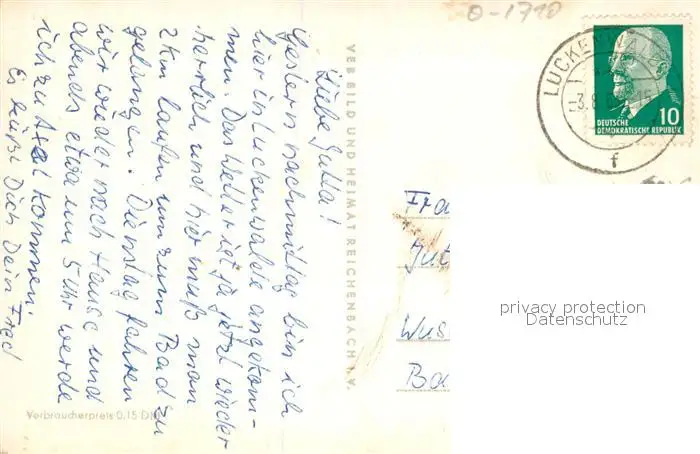 Liebe Jutta!
Gestern nachmittag bin ich
hier in Luckenwalde angekom-
men. Das Wetter ist ja jetzt wieder
herrlich und hier muß man
2 km laufen um zum Bad zu
gelangen. Dienstag fahren
wir wieder nach Hause und
abends etwa um 5 Uhr werde
ich zu Axel kommen.
Es grüßt Dich Dein Fred
VEB BILD UND HEIMAT REICHENBACH I. V.
Verbraucherpreis 0,15 DM
0-1710
LUCKENWA
-3.8.
f
10
DEUTSCHE
DEMOKRATISCHE REPUBLIK
Fra
Jut
Wus
Ba
privacy protection
Datenschutz